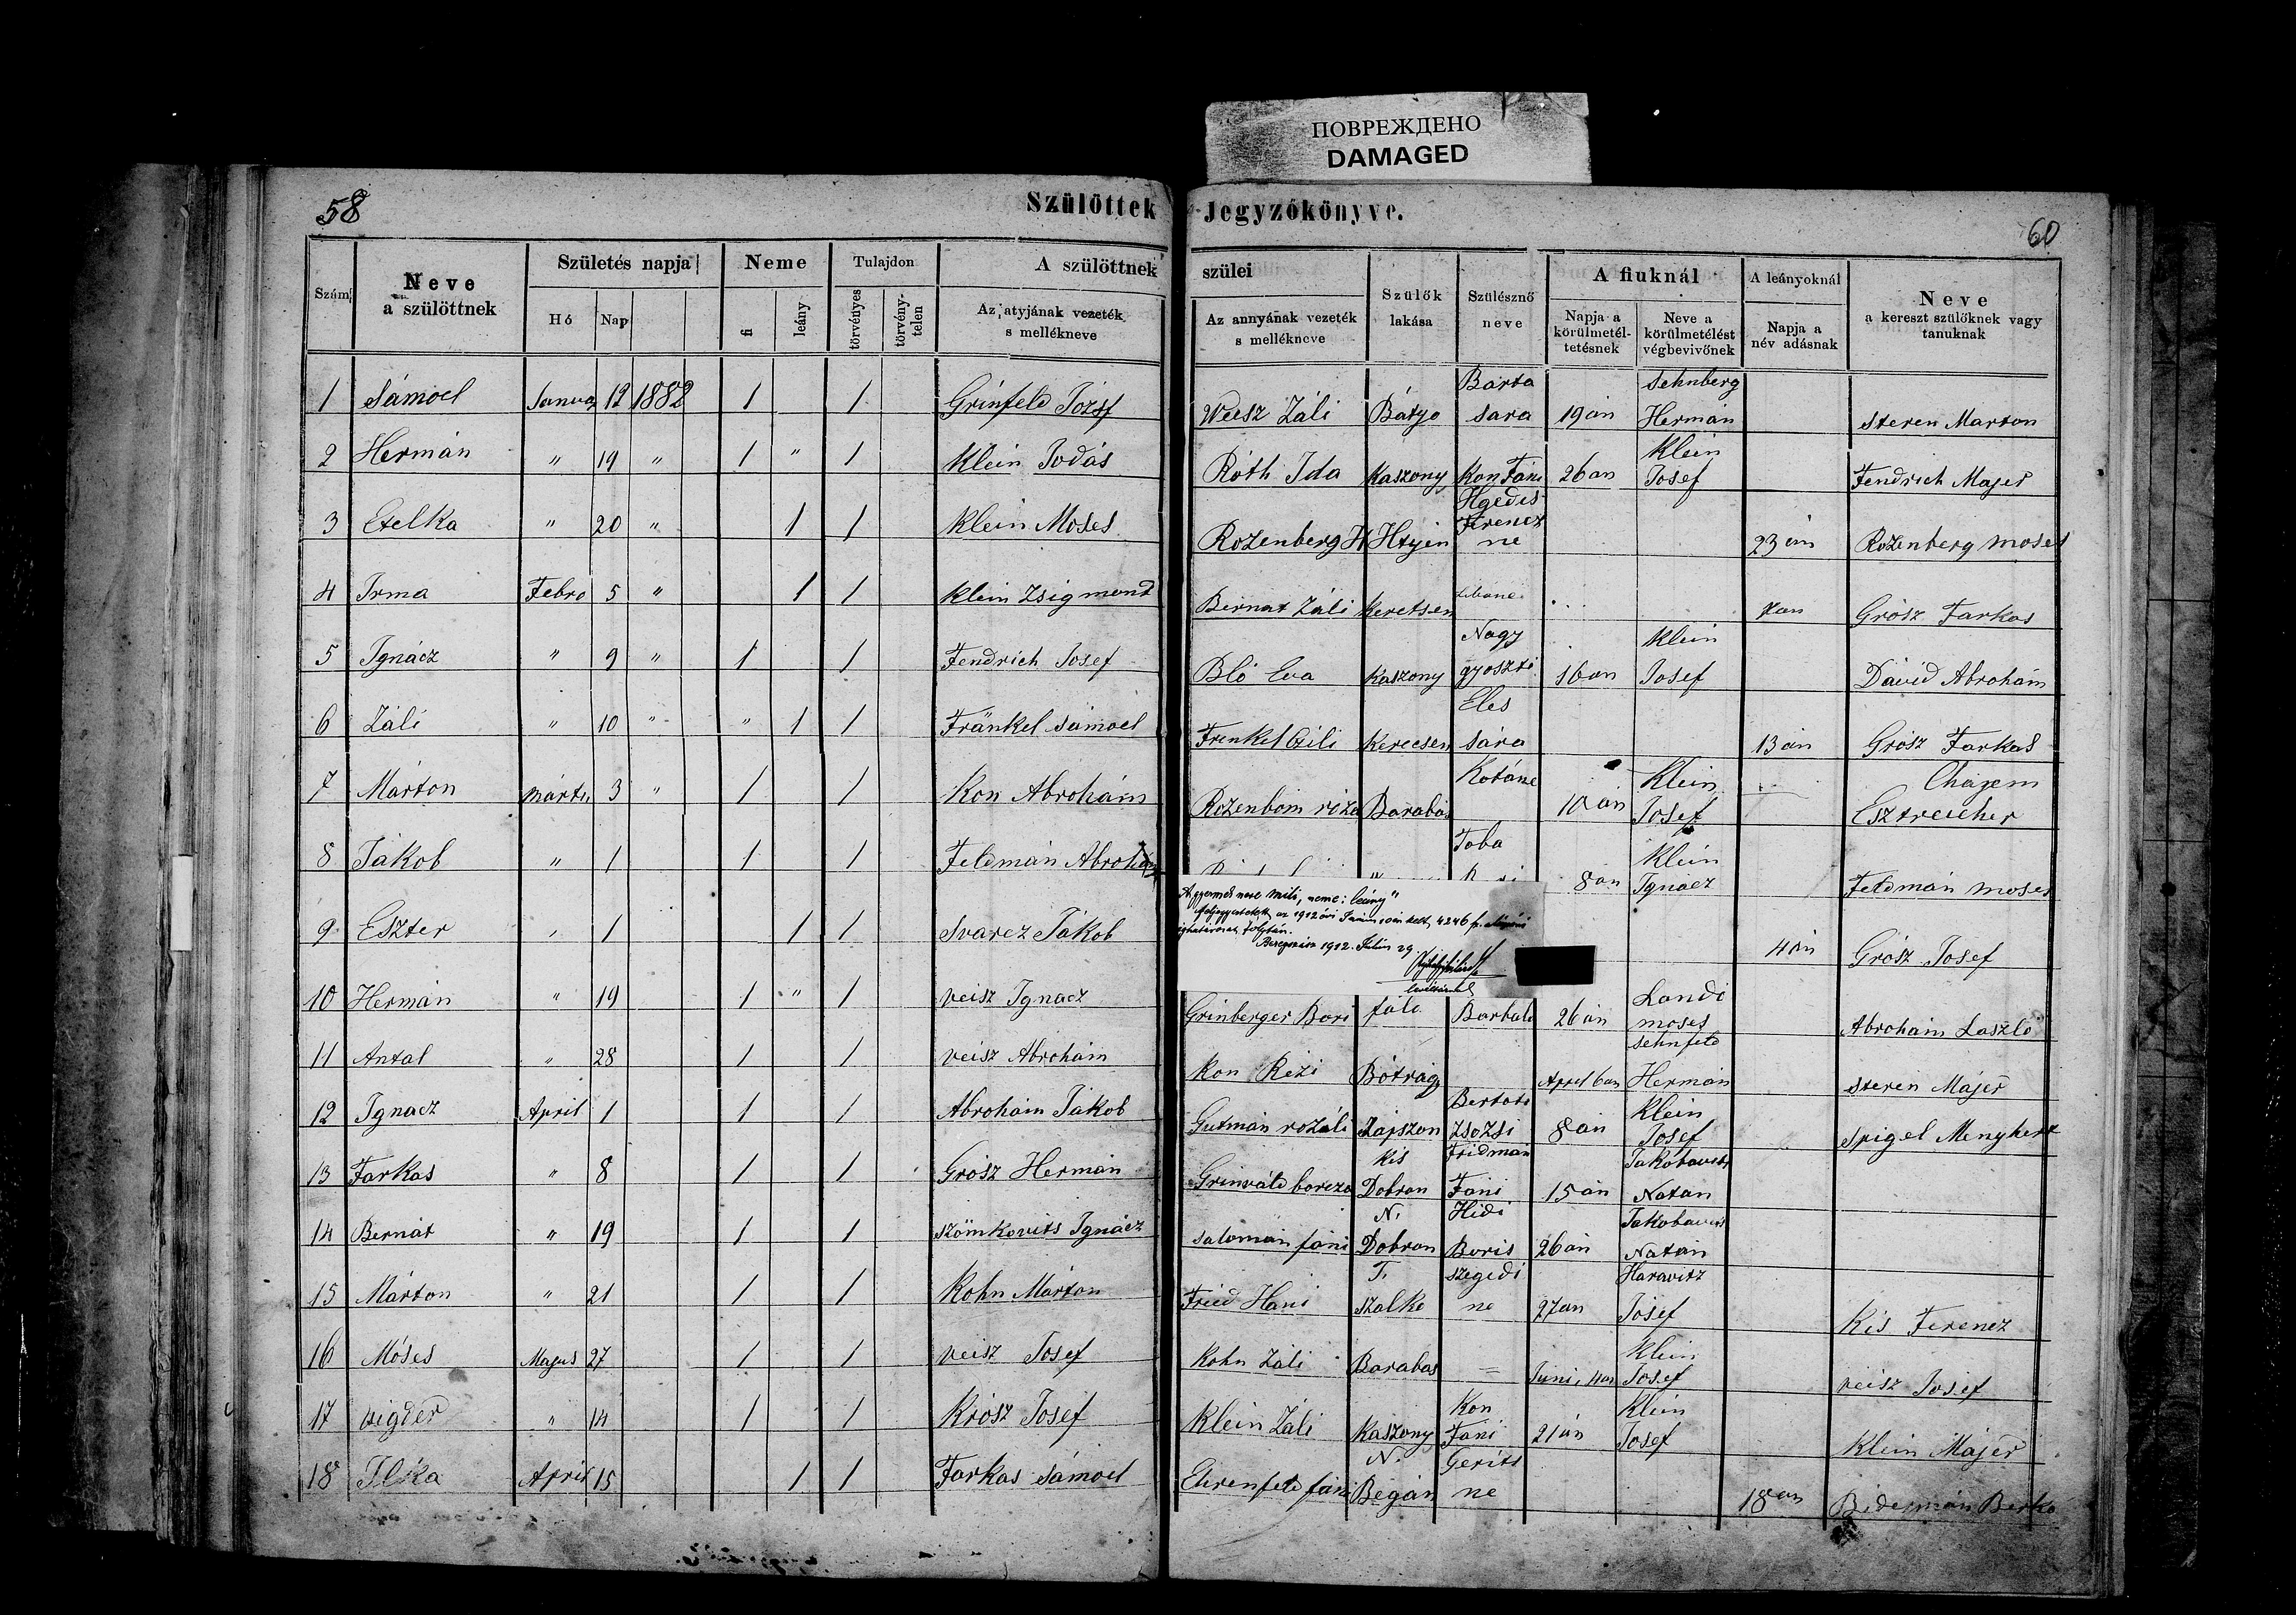 ПОВРЕЖДЕНО
DAMAGED
58
Szülöttek Jegyzőkönyve.
60
Szám
Neve a szülöttnek
Születés napja
Hó
Nap
Neme
fi
leány
Tulajdon
törvényes
törvény-telen
A szülöttnek szülei
Az atyjának vezeték s mellékneve
Az annyának vezeték s mellékneve
Szülők lakása
Szülésznő neve
A fiuknál
Napja a körülmetél-tetésnek
Neve a körülmetélést végbevivőnek
A leányoknál
Napja a név adásnak
Neve a kereszt szülőknek vagy tanuknak
1 Sámoel Januar 12 1882 1 1 Grinfeld Józsf Weisz Záli Bátyo Barta sara 19 án Sehnberg Hermán Steren Marton
2 Hermán " 19 " 1 " 1 Klein Jodás Róth Ida Kaszony Kon Fáni 26 an Klein Josef Fendrich Majer
3 Etelka " 20 " 1 1 Klein Moses Rozenberg H Htyen Hgedes Ferencz ne 23 án Rozenberg moses
4 Irma Febro 5 " 1 1 Klein Zsigmond Bernat Záli Keretsen 7 an Grósz Farkas
5 Ignácz " 9 " 1 1 Fendrich Josef Bló Eva Kaszony Nagy gyoszti 16 an Klein Josef Dávid Abrohám
6 Záli " 10 " " 1 1 Fränkel Sámoel Frenkel Czili Kerecsen Eles sára 13 án Grósz Farkas
7 Márton márts 3 " 1 1 Kon Abrohám Rozenbóm riza Barabás Kotáne 10 án Klein Josef Chazem Esztreicher
8 Jákob " 1 1 1 Feldmán Abrohám Toba 8 an Klein Ignácz Feldmán moses
A gyermek neve Mili, neme: leány"
az 1912 évi kelt 4246
folytán.
1912. Julius 29.
9 Eszter " 1 1 1 Svarcz Jákob 4 án Grósz Josef
10 Hermán " 19 1 " 1 veisz Ignacz Grinberger Bori falo Borbala 26 án Landi moses Abrohám Laszló
11 Antal " 28 1 1 veisz Abrohám Kon Rézi Bótrágy Aprel 6 an Sehnfeld Hermán Steren Májer
12 Ignacz April 1 1 1 Abrohám Jákob Gutmán rozáli Zápszon Bertots Zsozsi 8 án Klein Josef Spigel Menyhert
13 Farkas " 8 1 1 Grósz Hermán Grinváld borcza Kis Dobron Fridmán Fáni 15 án Jakobavits Natan
14 Bernát " 19 1 1 Szömkovits Ignácz Salomán fáni N. Dobron Hidi Boris 26 án Jakobavits Natán
15 Márton " 21 1 1 Kohn Márton Fried Hani T. szalka szegedi ne 27 an Haravitz Josef Kis Ferencz
16 Móses Majus 27 1 1 veisz Josef Kohn Záli Barabas = Juni 4 an Klein Josef veisz Josef
17 vigder " 14 1 1 Krósz Josef Klein Záli Kaszony Kon Fáni 21 án Klein Josef Klein Májer
18 Ilka April 15 1 1 Farkas Sámoel Ehrenfeld fáni N. Begán Gerits ne 18 an Bidermán Berko